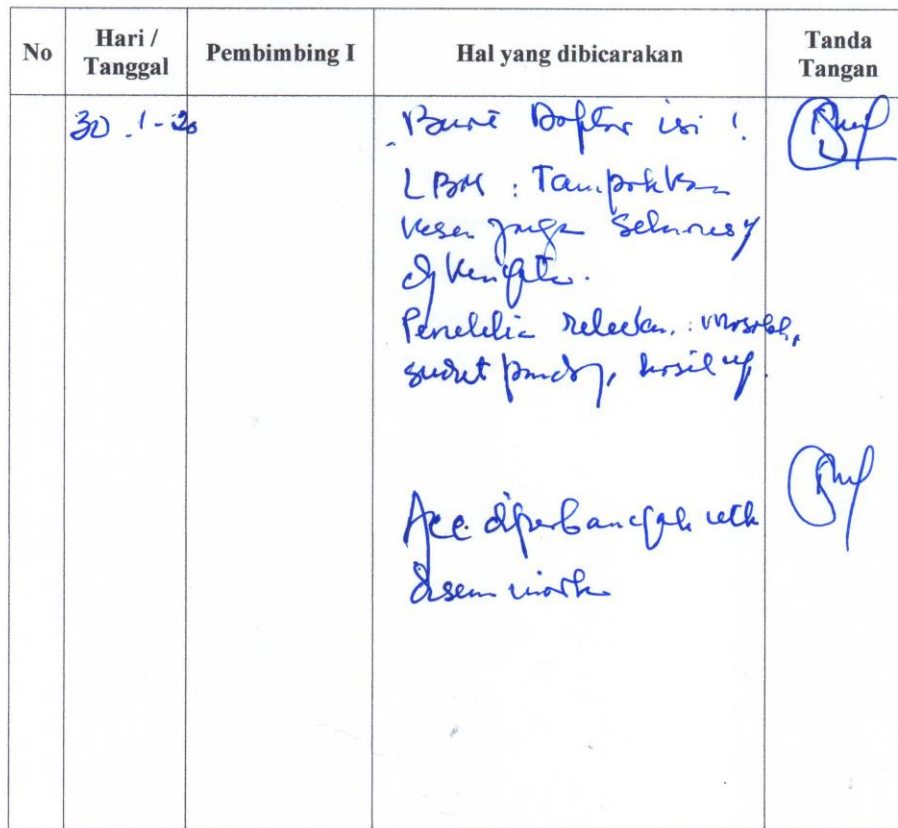 No
Hari /
Tanggal
Pembimbing I
Hal yang dibicarakan
Tanda
Tangan
30 . 1 - 20
Daftar isi !
LBM : Tampakkan
dg
Penelitia relevan : masalah,
sudut pandg, hasil
Acc diperbanyak utk
diseminarkn